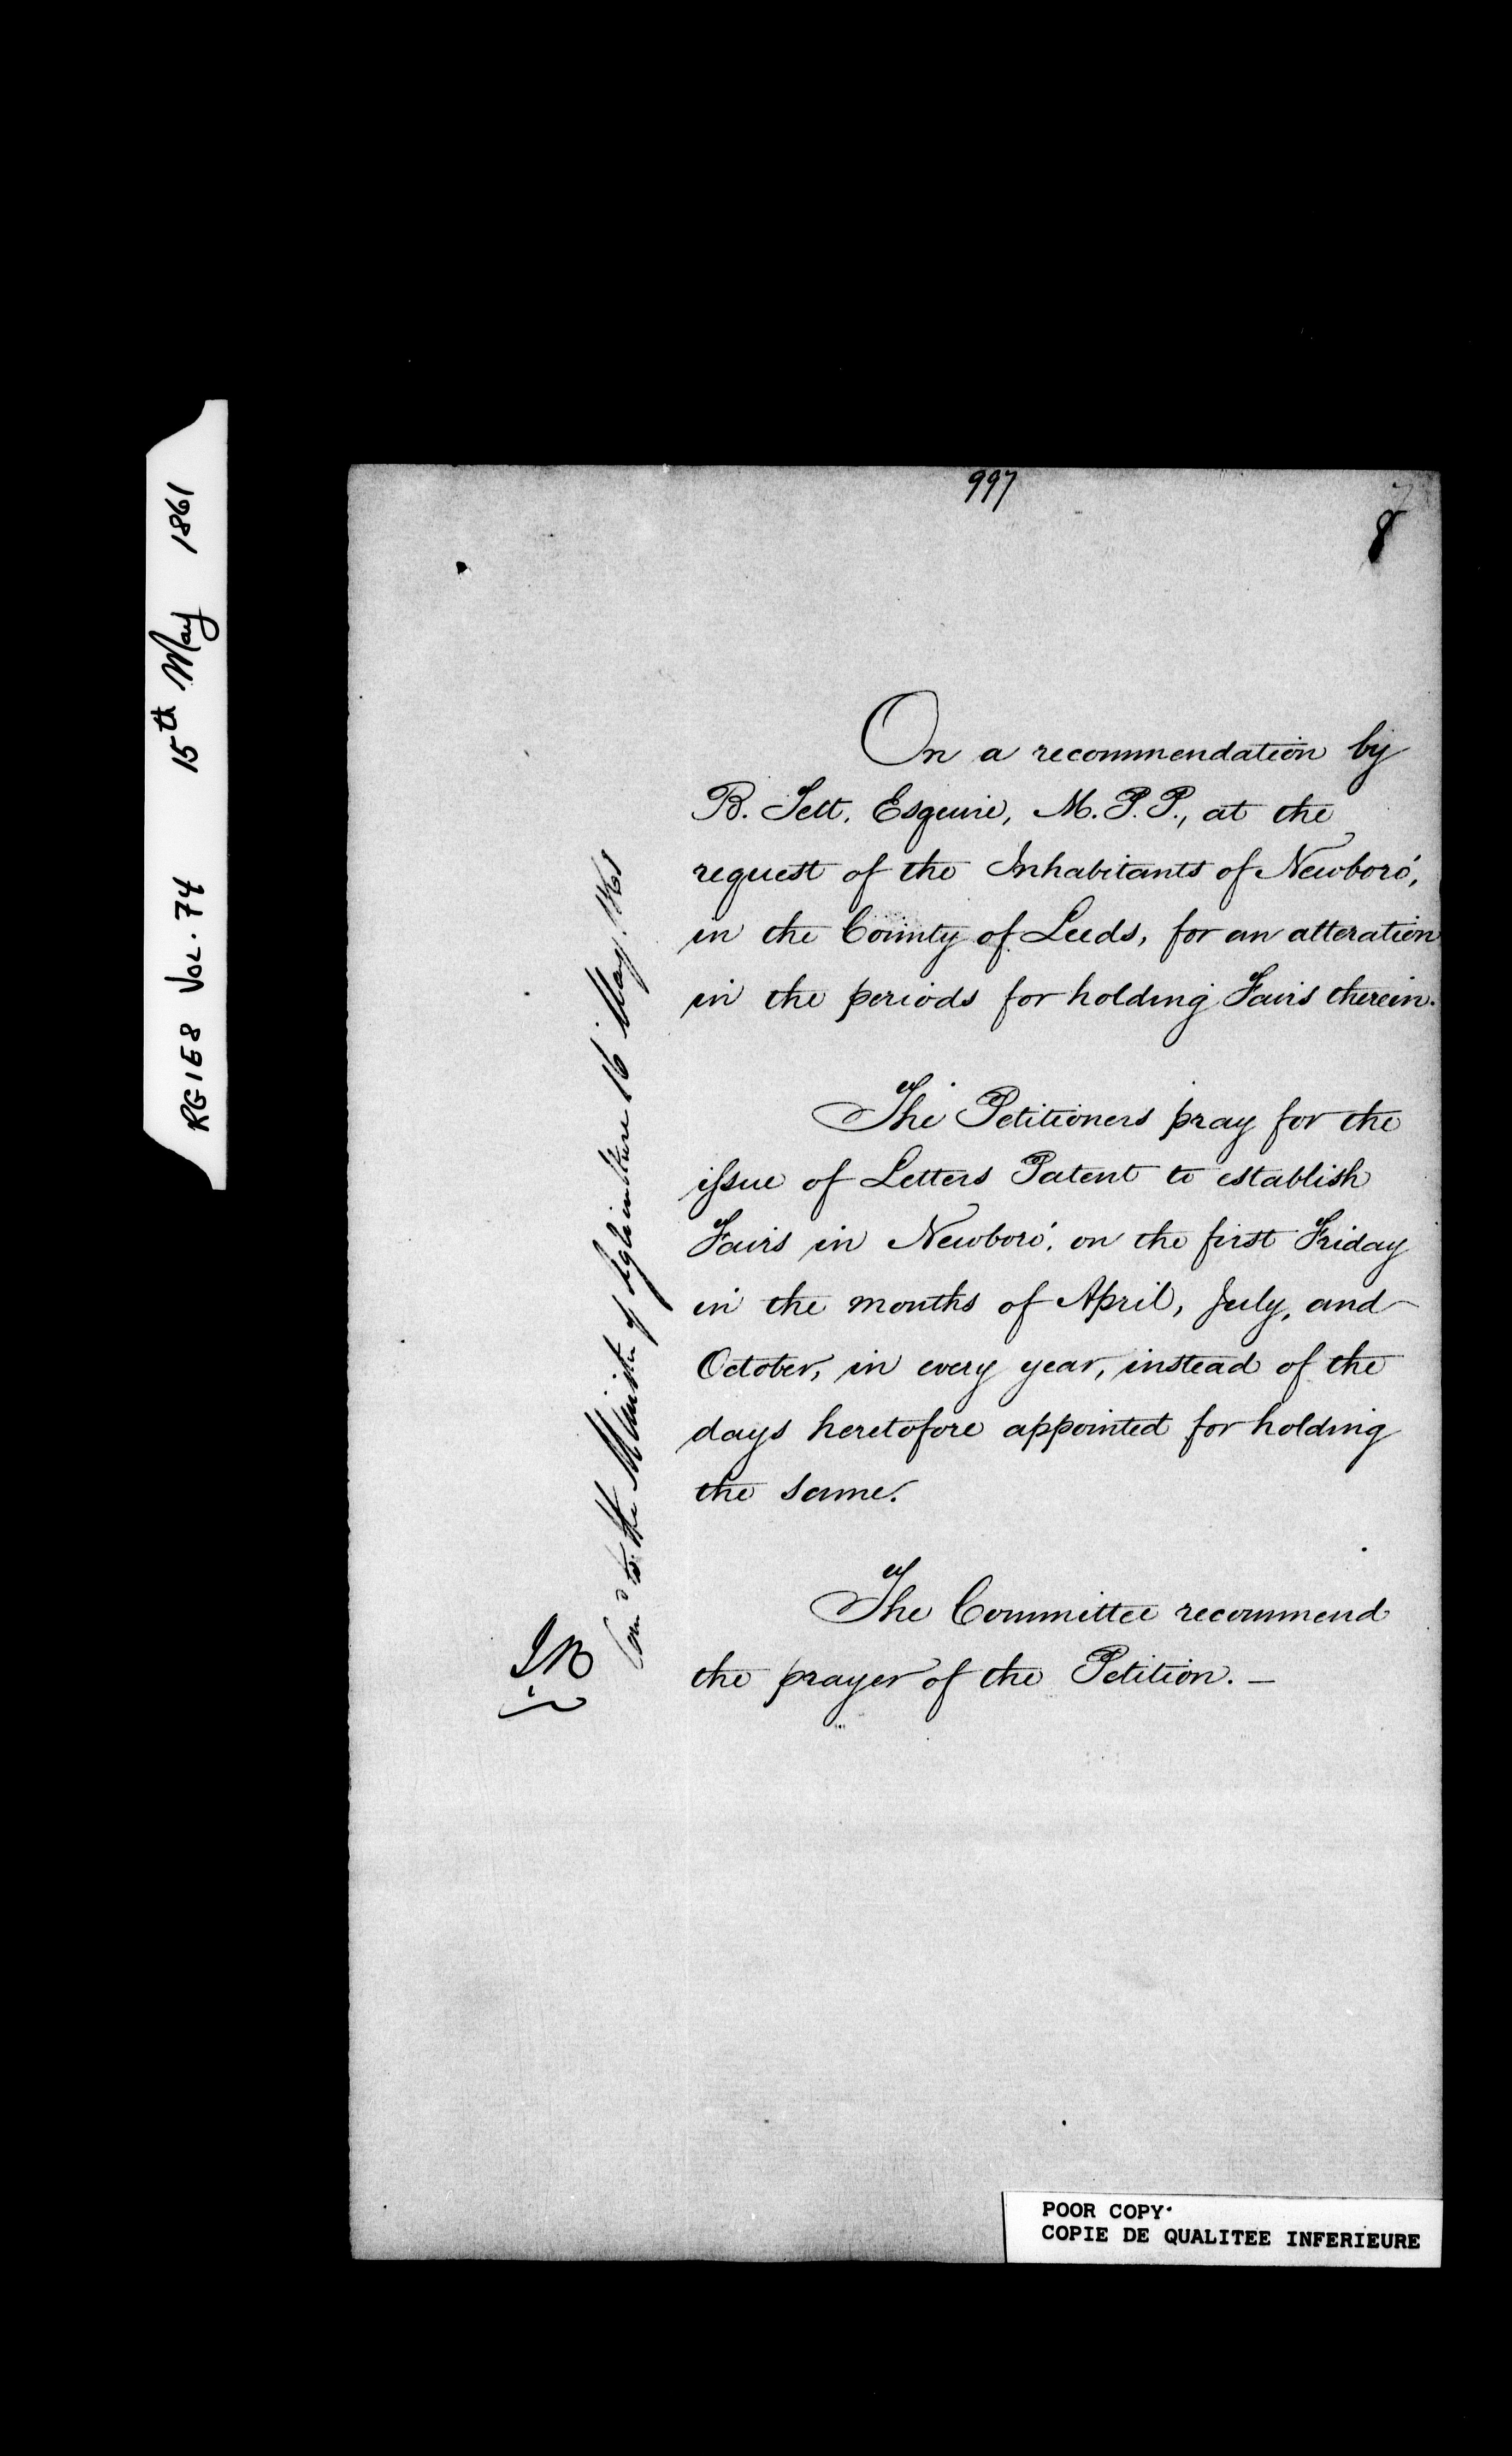 RG1E8 VOL. 74 15th May 1861
997
8
On a recommendation by
B. Tett. Esquire, M.P.P., at the
request of the Inhabitants of Newboro',
in the County of Leeds, for an alteration
in the periods for holding Fairs therein.
The Petitioners pray for the
issue of Letters Patent to establish
Fairs in Newboro'. on the first Friday
in the months of April, July, and
October, in every year, instead of the
days heretofore appointed for holding
the same.
The Committee recommend
the prayer of the Petition. —
Com'd to the Minister of Agriculture 16 May. 1861
POOR COPY
COPIE DE QUALITEE INFERIEURE